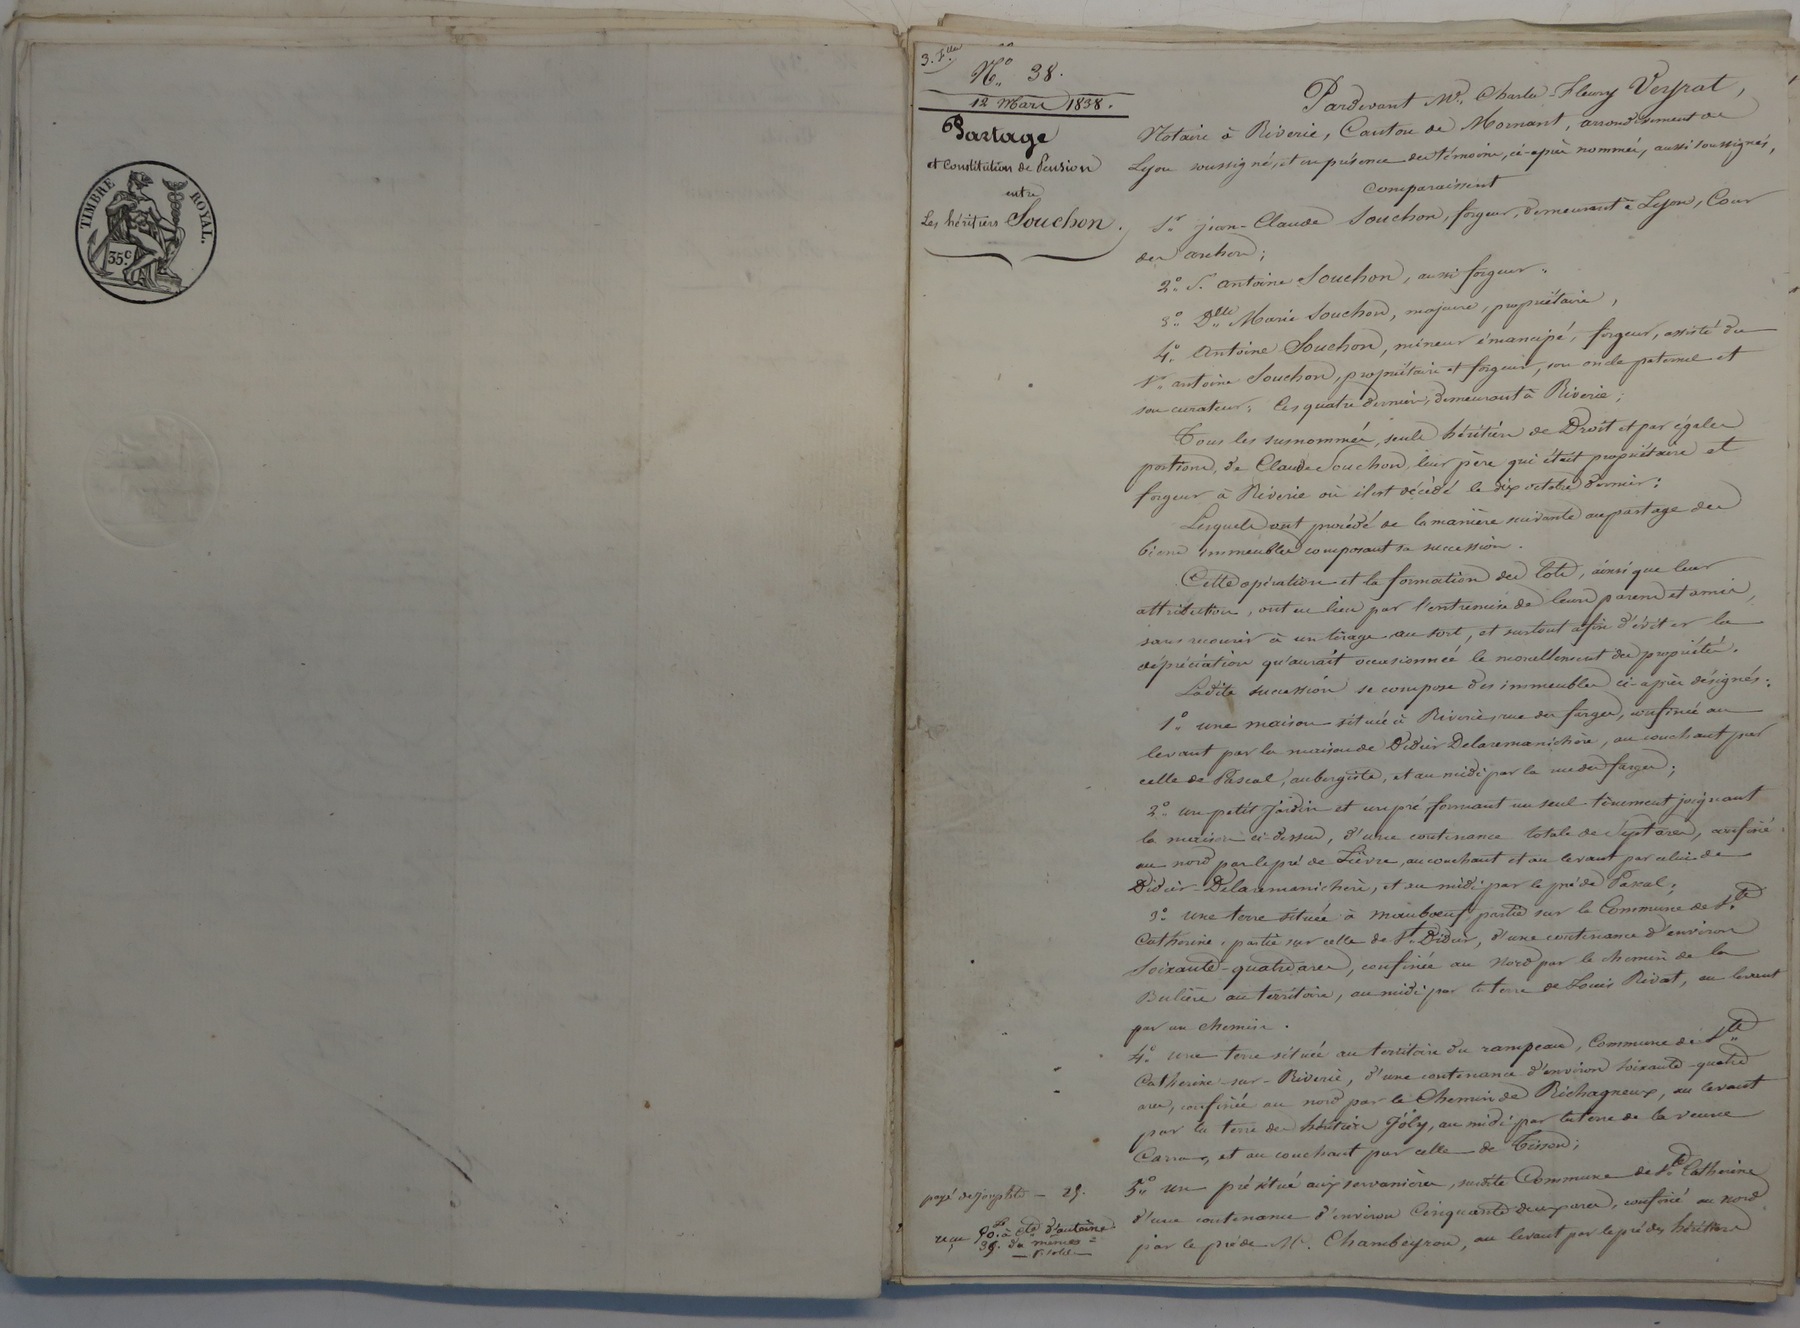 TIMBRE ROYAL.
35 c.
3. f.lles
N.o 38.
12 Mars 1838.
Partage
et constitution de Pension
entre
Les héritiers Souchon.
Pardevant M.e Charles-Fleury Veyrat,
Notaire à Riverie, Canton de Mornant, arrondissement de
Lyon soussigné, et en présence des témoins, ci-après nommés, aussi soussignés,
comparaissent
S.r jean-Claude Souchon, forgeur, demeurant à Lyon, Cour
des archers;
2.o S. antoine Souchon, aussi forgeur;
3.o D.lle Marie Souchon, majeure, propriétaire,
4.o Antoine Souchon, mineur émancipé, forgeur, assisté du
S.r antoine Souchon, propriétaire et forgeur, son oncle paternel et
son curateur; les quatre derniers, demeurant à Riverie;
Tous les susnommés, seuls héritiers de Droit et par égales
portions, de Claude Souchon, leur père qui était propriétaire et
forgeur à Riverie où il est décédé le dix octobre dernier;
Lesquels ont procédé de la manière suivante au partage des
biens immeubles composant sa succession.
Cette opération et la formation des lots, ainsi que leur
attribution, ont eu lieu par l'entremise de leurs parens et amis,
sans recourir à un tirage au sort, et surtout afin d'éviter la
dépréciation qu'aurait occasionnée le morcellement des propriétés.
Ladite succession se compose des immeubles ci-après désignés:
1.o une maison située à Riverie, rue des farges, confinée au
levant par la maison de Didier Delaremanichère, au couchant par
celle de Pascal, aubergiste, et au midi par la rue des farges;
2.o un petit jardin et un pré, formant un seul tènement joignant
la maison ci-dessus, d'une contenance totale de Sept ares, confiné
au nord par le pré de Lièvre, au couchant et au levant par celui de
Didier Delaremanichère, et au midi par le pré de Pascal;
3.o une terre située à mauboeuf partie sur la Commune de S.te
Catherine, partie sur celle de S.t Didier, d'une contenance d'environ
Soixante-quatre ares, confinée au Nord par le chemin de la
au territoire, au midi par la terre de Louis Rivat, au levant
par un chemin.
4.o une terre située au territoire du rampeau, Commune de S.te
Catherine-sur-Riverie, d'une contenance d'environ soixante-quatre
ares, confinée au nord par le Chemin de Richagneux, au levant
par la terre des héritiers Joly, au midi par la terre de la veuve
et au couchant par celle de Tisson;
5.o un pré situé aux servanières, susdite Commune de S.te Catherine
d'une contenance d'environ Cinquante deux ares, confiné au nord
par le pré de M. Chambeyron, au levant par le pré des héritiers
payé — 25.
reçu 90. à c.te d'antoine
35. du même
— Solde